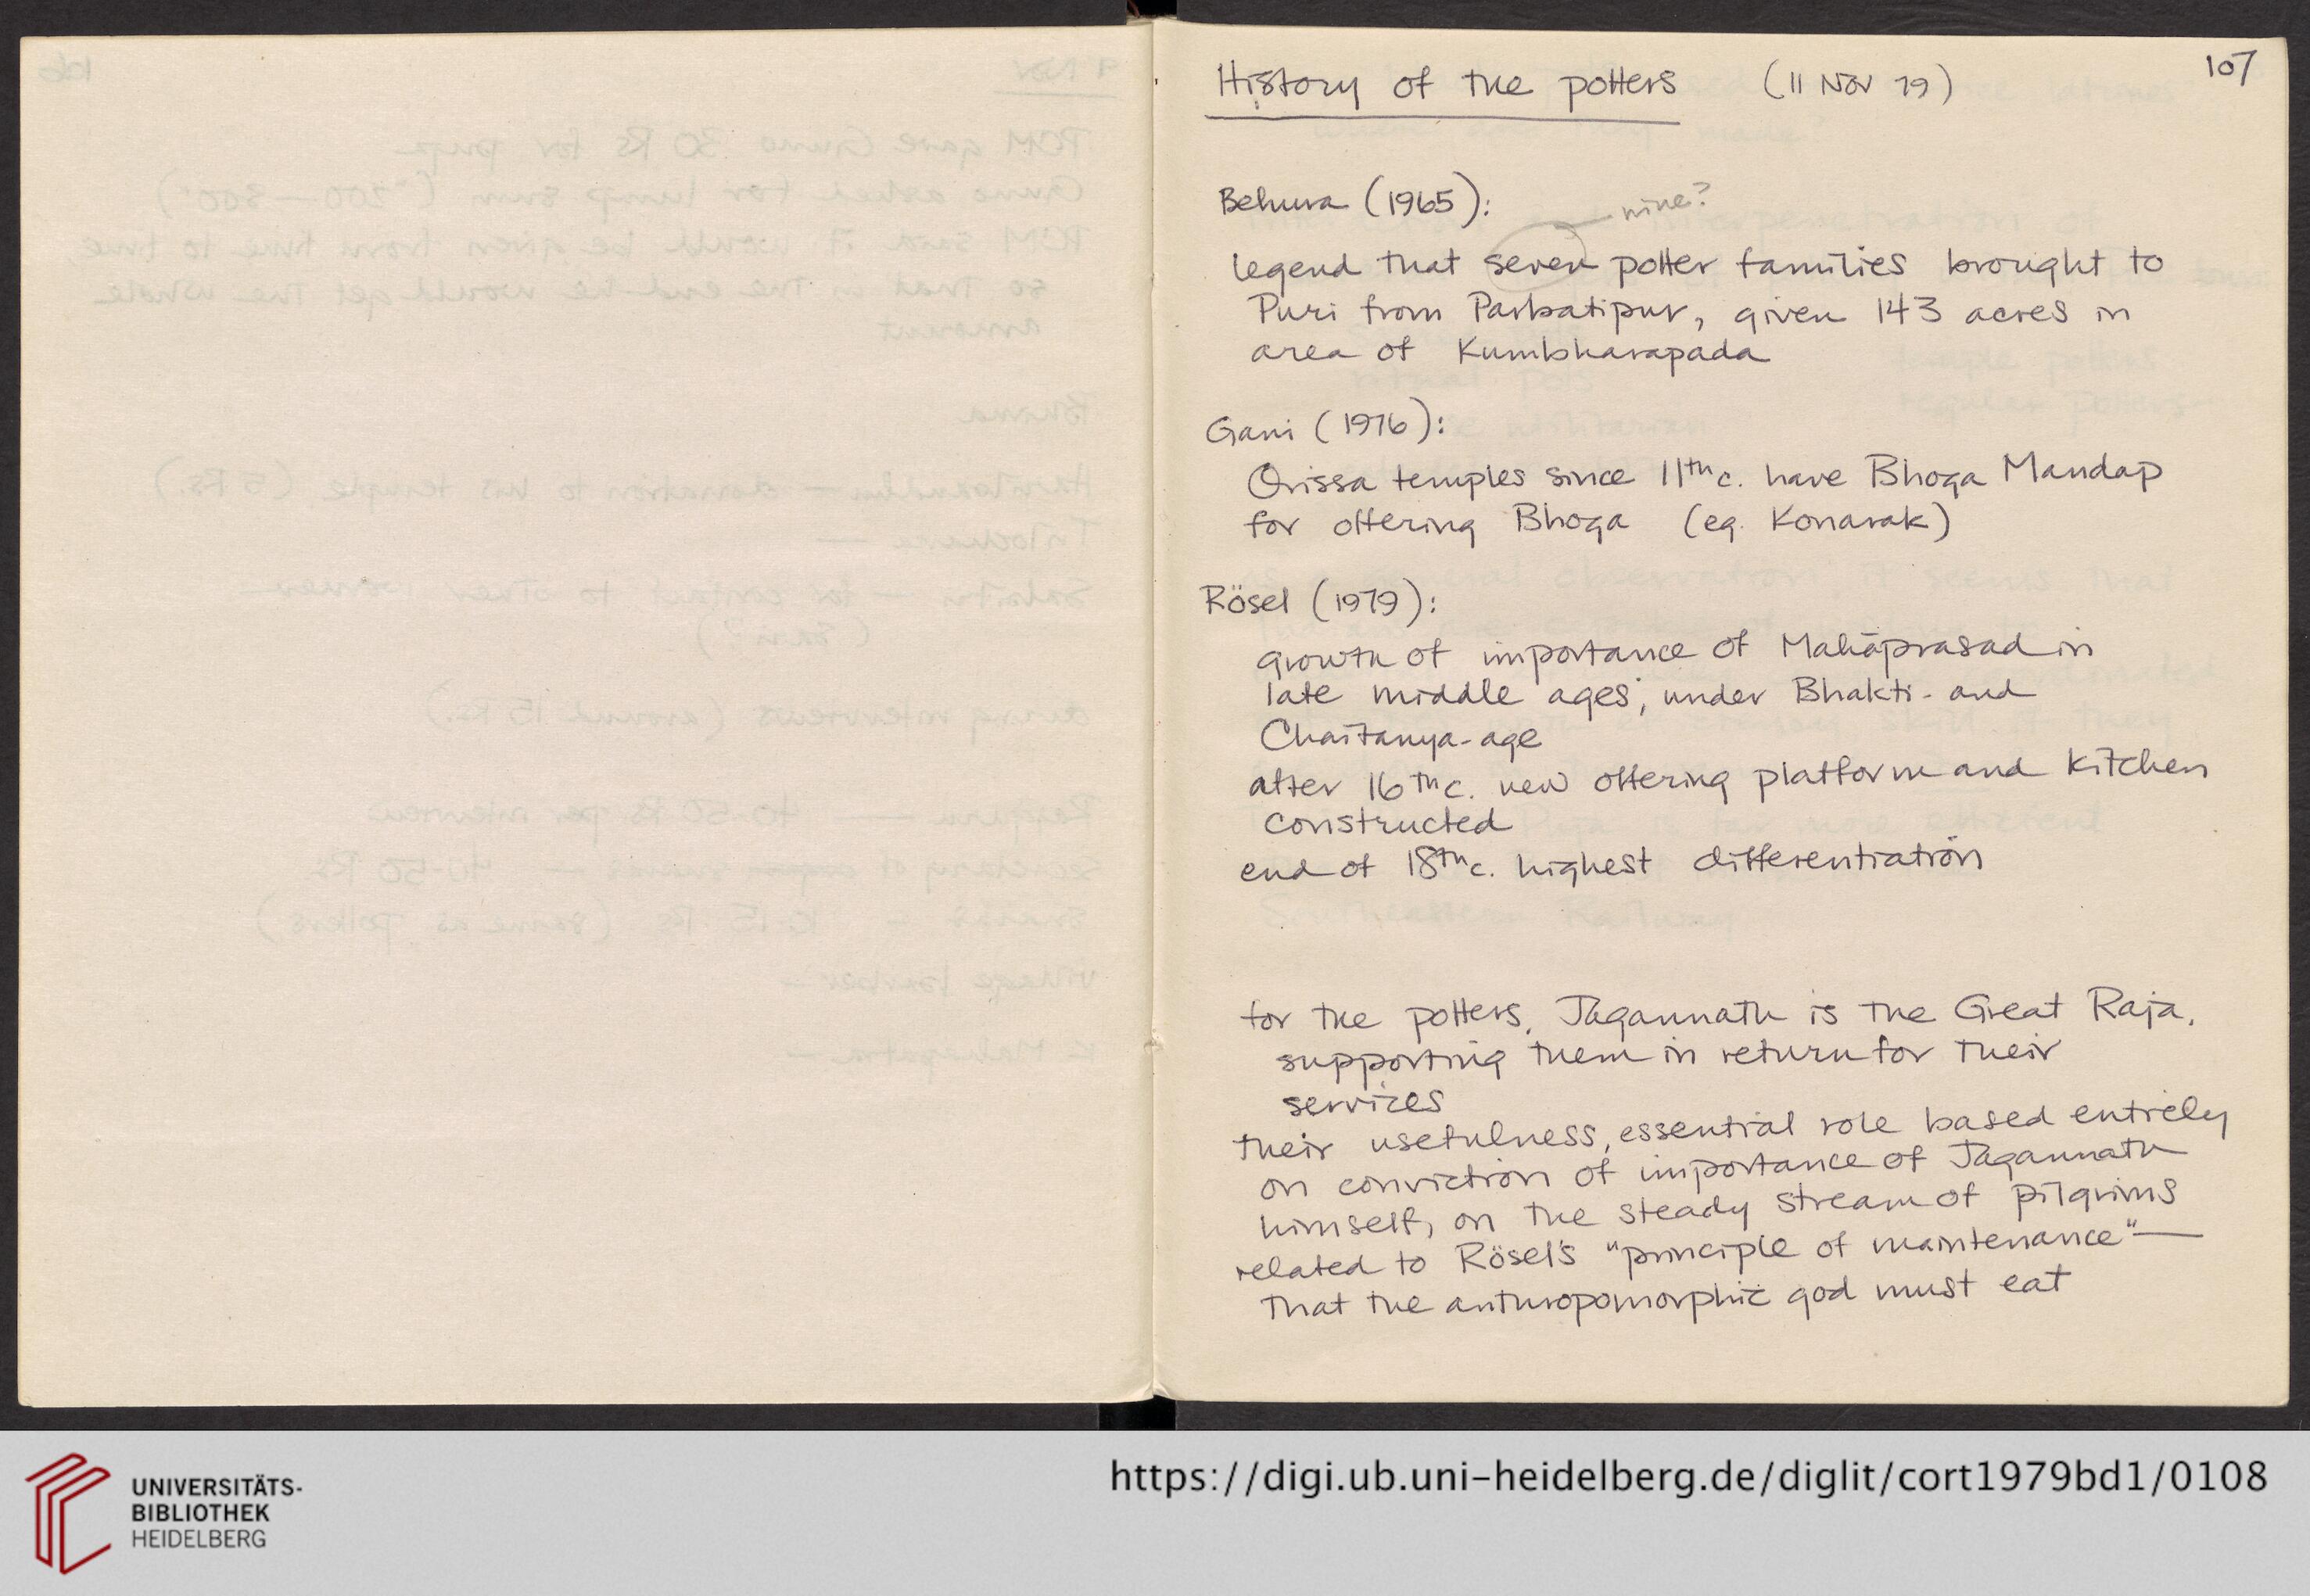 107
History of the potters (11 Nov 79)
Behura (1965):
nine?
legend that seven potter families brought to
Puri from Parbatipur, given 143 acres in
area of Kumbharapada
Gani (1976):
Orissa temples since 11th c. have Bhoga Mandap
for offering Bhoga (eg. Konarak)
Rösel (1979):
growth of importance of Mahāprasad in
late middle ages, under Bhakti- and
Chaitanya-age
after 16th c. new offering platform and kitchen
constructed
end of 18th c. highest differentiation
for the potters, Jagannath is the Great Raja,
supporting them in return for their
services
their usefulness, essential role based entirely
on conviction of importance of Jagannath
himself, on the steady stream of pilgrims
related to Rösel's "principle of maintenance" —
that the anthropomorphic god must eat
UNIVERSITÄTS-
BIBLIOTHEK
HEIDELBERG
https://digi.ub.uni-heidelberg.de/diglit/cort1979bd1/0108